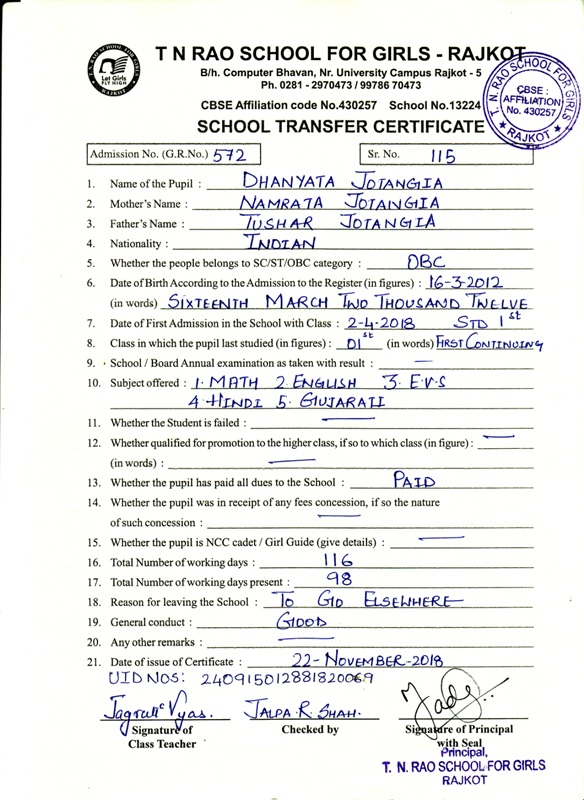 T N RAO SCHOOL FOR GIRLS - RAJKOT
B/h. Computer Bhavan, Nr. University Campus Rajkot - 5
Ph. 0281 - 2970473 / 99786 70473
CBSE Affiliation code No.430257 School No.13224
SCHOOL TRANSFER CERTIFICATE
T. N. RAO SCHOOL FOR GIRLS
CBSE :
AFFILIATION
No. 430257
★ RAJKOT ★
T N RAO SCHOOL FOR GIRLS
Let Girls
FLY HIGH
RAJKOT
Admission No. (G.R.No.) 572 Sr. No. 115
1. Name of the Pupil : DHANYATA JOTANGIA
2. Mother's Name : NAMRATA JOTANGIA
3. Father's Name : TUSHAR JOTANGIA
4. Nationality : INDIAN
5. Whether the people belongs to SC/ST/OBC category : OBC
6. Date of Birth According to the Admission to the Register (in figures) : 16-3-2012
(in words) SIXTEENTH MARCH TWO THOUSAND TWELVE
7. Date of First Admission in the School with Class : 2-4-2018 STD 1st
8. Class in which the pupil last studied (in figures) : 01st (in words) FIRST CONTINUING
9. School / Board Annual examination as taken with result : —
10. Subject offered : 1. MATH 2. ENGLISH 3. E.V.S
4. HINDI 5. GUJARATI
11. Whether the Student is failed : —
12. Whether qualified for promotion to the higher class, if so to which class (in figure) : —
(in words) : —
13. Whether the pupil has paid all dues to the School : PAID
14. Whether the pupil was in receipt of any fees concession, if so the nature
of such concession : —
15. Whether the pupil is NCC cadet / Girl Guide (give details) : —
16. Total Number of working days : 116
17. Total Number of working days present : 98
18. Reason for leaving the School : TO GO ELSEWHERE
19. General conduct : GOOD
20. Any other remarks : —
21. Date of issue of Certificate : 22-NOVEMBER-2018
UID NOS: 240915012881820069
Jagruti Vyas. JALPA R. SHAH.
Signature of
Class Teacher
Checked by
Signature of Principal
with Seal
Principal,
T. N. RAO SCHOOL FOR GIRLS
RAJKOT